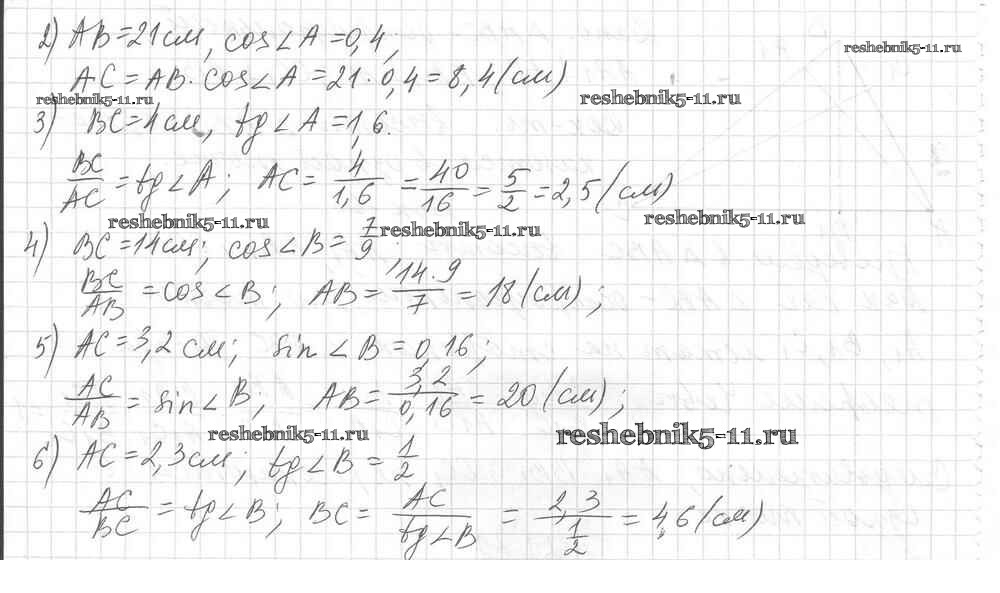 2) AB=21см, cos∠A=0,4;
reshebnik5-11.ru
AC=AB·cos∠A=21·0,4=8,4(см)
reshebnik5-11.ru
reshebnik5-11.ru
3) BC=4см, tg∠A=1,6.
BC/AC=tg∠A; AC=4/1,6=40/16=5/2=2,5(см)
reshebnik5-11.ru
reshebnik5-11.ru
reshebnik5-11.ru
4) BC=14см; cos∠B=7/9.
BC/AB=cos∠B; AB=14·9/7=18(см);
5) AC=3,2см; sin∠B=0,16;
AC/AB=sin∠B; AB=3,2/0,16=20(см);
reshebnik5-11.ru
reshebnik5-11.ru
6) AC=2,3см; tg∠B=1/2
AC/BC=tg∠B; BC=AC/tg∠B=2,3/1/2=4,6(см)